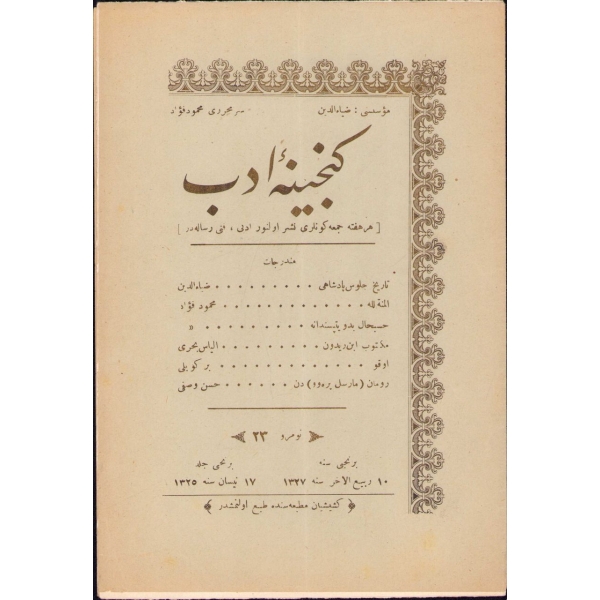 مؤسسی : ضیاءالدین
سر محرری محمود فؤاد
كنجینهٔ ادب
[ هر هفته جمعه كونلری نشر اولنور ادبی ، فنی رساله‌در ]
مندرجات
تاریخ جلوس پادشاهی . . . . . . . . . ضیاءالدین
المنة لله . . . . . . . . . . . . . محمود فؤاد
حسبحال بدوینپسندانه . . . . . . . . . »
مكتوب ابن زیدون . . . . . . . . . الیاس بحری
اوقو . . . . . . . . . . . . . بركویلی
رومان ( مارسل پره‌وو ) دن . . . . . . حسن وصفی
نومرو ٢٣
برنجی سنه
برنجی جلد
١٠ ربیع الآخر سنه ١٣٢٧
١٧ نیسان سنه ١٣٢٥
﴿ كشیشیان مطبعه‌سنده طبع اولنمشدر ﴾